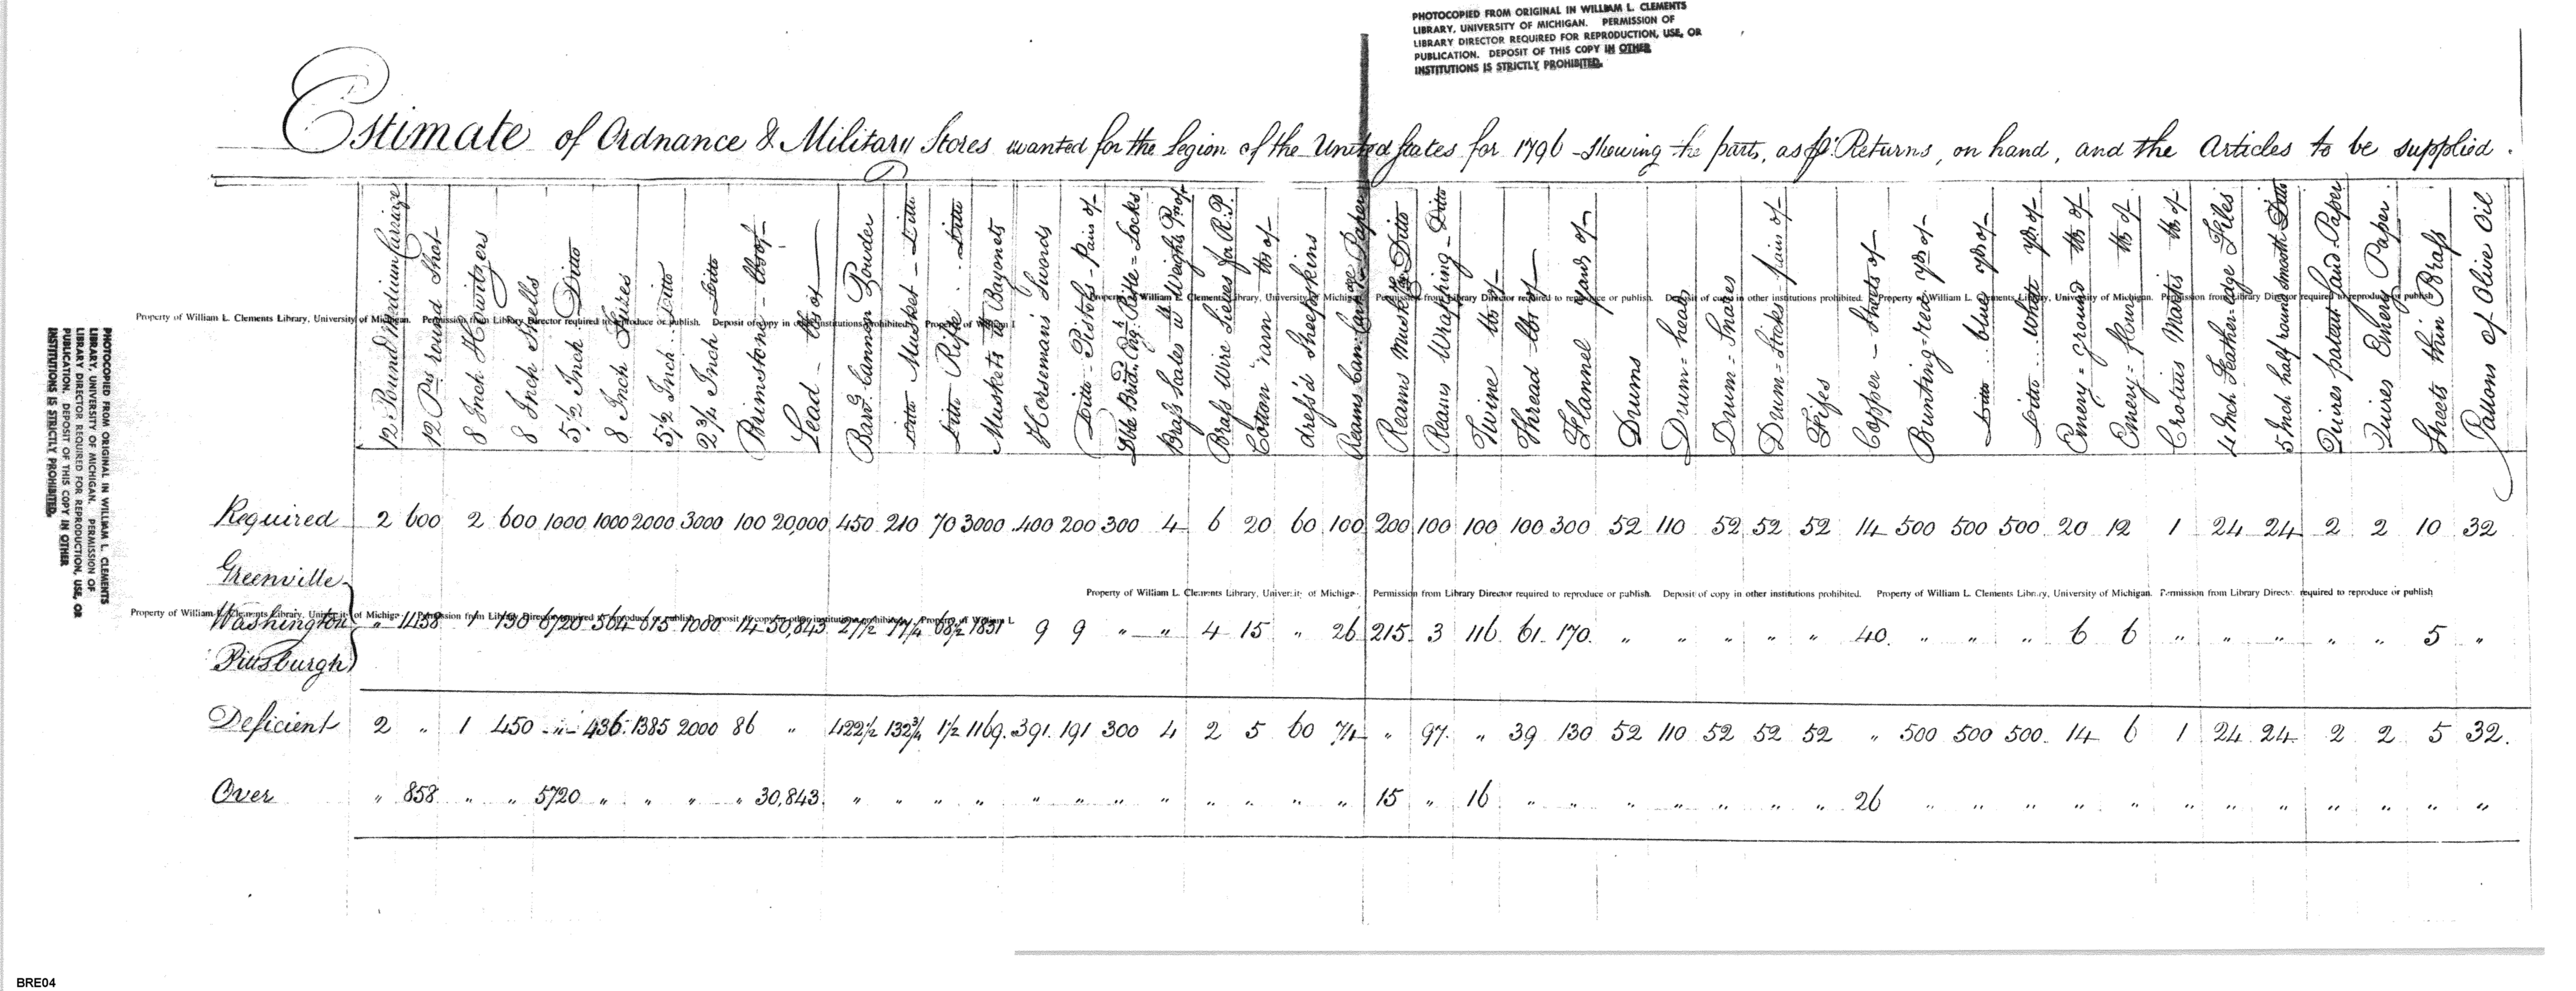 PHOTOCOPIED FROM ORIGINAL IN WILLIAM L. CLEMENTS
LIBRARY, UNIVERSITY OF MICHIGAN. PERMISSION OF
LIBRARY DIRECTOR REQUIRED FOR REPRODUCTION, USE, OR
PUBLICATION. DEPOSIT OF THIS COPY IN OTHER
INSTITUTIONS IS STRICTLY PROHIBITED.
Estimate of Ordnance & Military Stores wanted for the Legion of the United States for 1796 - Shewing the parts, as pr. Returns, on hand, and the Articles to be supplied.
12 Pound Medium Carriage
12 Pdr. round Shot
8 Inch Howitzers
8 Inch Shells
5½ Inch Ditto
8 Inch Fuzes
5½ Inch Ditto
2¾ Inch Ditto
Brimstone - lbs of
Lead - lbs of
Barrs. Cannon Powder
Ditto Musket - Ditto
Ditto Rifle - Ditto
Muskets wth Bayonets
Horsemans Swords
Ditto - Pistols - Pairs of
Rifle = Locks
Brass Scales wth Weights Prs of
Brass Wire Sieves for R.P.
Cotton Yarn lbs of
dress'd Sheepskins
Reams Cannon Cartge Paper
Reams Musket Ditto
Reams Wrapping - Ditto
Twine lbs of
Thread lbs of
Flannel Yards of
Drums
Drum = heads
Drum = Snares
Drum = Sticks - pairs of
Fifes
Copper - Sheets of
Bunting = red yds of
Ditto blue yds of
Ditto White yds of
Emery = ground lbs of
Emery = flour lbs of
Crocus Martis lb of
4 Inch Feather-edge Files
5 Inch half round smooth Ditto
Quires patent Sand-Paper
Quires Emery Paper
Sheets thin Brass
Gallons of Olive Oil
Property of William L. Clements Library, University of Michigan. Permission from Library Director required to reproduce or publish. Deposit of copy in other institutions prohibited. Property of William L. Clements Library, University of Michigan. Permission from Library Director required to reproduce or publish
Property of William L. Clements Library, University of Michigan. Permission from Library Director required to reproduce or publish. Deposit of copy in other institutions prohibited. Property of William L
Required 2 600 2 600 1000 1000 2000 3000 100 20,000 450 210 70 3000 400 200 300 4 6 20 60 100 200 100 100 100 300 52 110 52 52 52 14 500 500 500 20 12 1 24 24 2 2 10 32
Greenville
Property of William L. Clements Library, University of Michigan. Permission from Library Director required to reproduce or publish. Deposit of copy in other institutions prohibited. Property of William L. Clements Library, University of Michigan. Permission from Library Director required to reproduce or publish
Property of William L. Clements Library, University of Michigan. Permission from Library Director required to reproduce or publish. Deposit of copy in other institutions prohibited. Property of William L
Washington " 1458 1 150 6720 564 615 1000 14 50,843 27½ 77¼ 68½ 1831 9 9 " " 4 15 " 26 215 3 116 61 170 " " " " " 40 " " " 6 6 " " " " " 5 "
Pittsburgh
Deficient 2 " 1 450 " 436 1385 2000 86 " 422½ 132¾ 1½ 1169 391 191 300 4 2 5 60 74 " 97 " 39 130 52 110 52 52 52 " 500 500 500 14 6 1 24 24 2 2 5 32.
Over " 858 " " 5720 " " " " 30,843 " " " " " " " " " " " " 15 " 16 " " " " " " " 26 " " " " " " " " " " " "
PHOTOCOPIED FROM ORIGINAL IN WILLIAM L. CLEMENTS
LIBRARY, UNIVERSITY OF MICHIGAN. PERMISSION OF
LIBRARY DIRECTOR REQUIRED FOR REPRODUCTION, USE, OR
PUBLICATION. DEPOSIT OF THIS COPY IN OTHER
INSTITUTIONS IS STRICTLY PROHIBITED.
BRE04